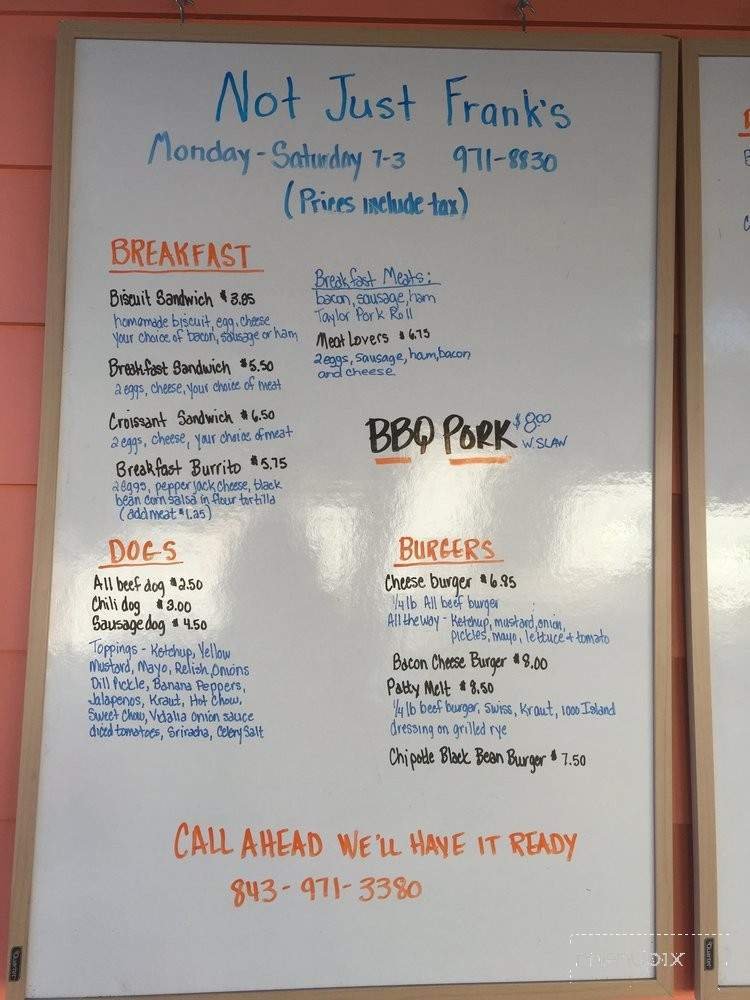 Not Just Frank's
Monday - Saturday 7-3 971-8830
(Prices include tax)
BREAKFAST
Biscuit Sandwich $3.85
homemade biscuit, egg, cheese
your choice of bacon, sausage or ham
Breakfast Sandwich $5.50
2 eggs, cheese, your choice of meat
Croissant Sandwich $6.50
2 eggs, cheese, your choice of meat
Breakfast Burrito $5.75
2 eggs, pepper jack cheese, black
bean corn salsa in flour tortilla
(add meat $1.25)
Breakfast Meats:
bacon, sausage, ham
Taylor Pork Roll
Meat Lovers $6.75
2 eggs, sausage, ham, bacon
and cheese
BBQ PORK $8.00
W. SLAW
DOGS
All beef dog $2.50
Chili dog $3.00
Sausage dog $4.50
Toppings - Ketchup, Yellow
Mustard, Mayo, Relish, Onions
Dill Pickle, Banana Peppers,
Jalapenos, Kraut, Hot Chow,
Sweet Chow, Vidalia onion sauce
diced tomatoes, Sriracha, Celery Salt
BURGERS
Cheese burger $6.95
1/4 lb All beef burger
All the way - Ketchup, mustard, onion,
pickles, mayo, lettuce + tomato
Bacon Cheese Burger $8.00
Patty Melt $8.50
1/4 lb beef burger, Swiss, Kraut, 1000 Island
dressing on grilled rye
Chipotle Black Bean Burger $7.50
CALL AHEAD WE'LL HAVE IT READY
843-971-3380
Quartet
Quartet